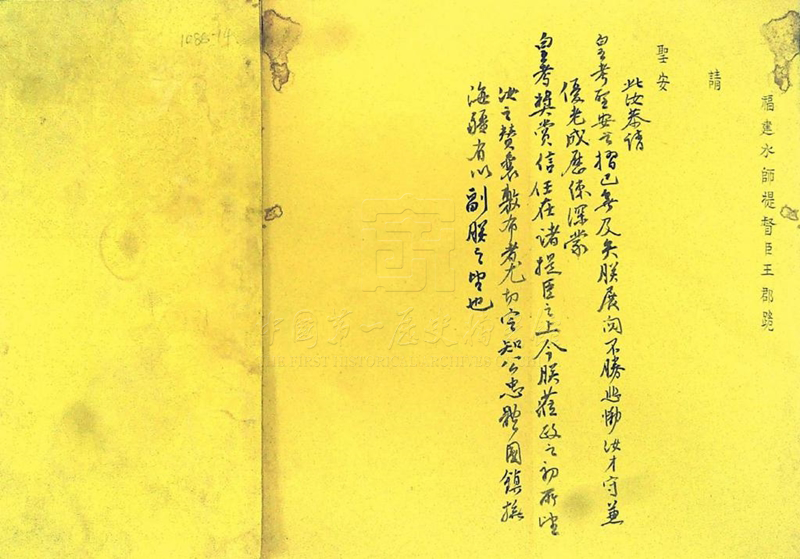 福建水師提督臣王郡跪
請
聖安
此汝恭請
皇考聖安之摺已無及矣朕展閱不勝悲慟汝才守兼
優老成歷練深蒙
皇考獎賞信任在諸提臣之上今朕蒞政之初所望
汝之贊襄敷布者尤切宜知公忠體國鎮撫
海疆有以副朕之望也
1088-14
中國第一歷史檔案館
THE FIRST HISTORICAL ARCHIVES